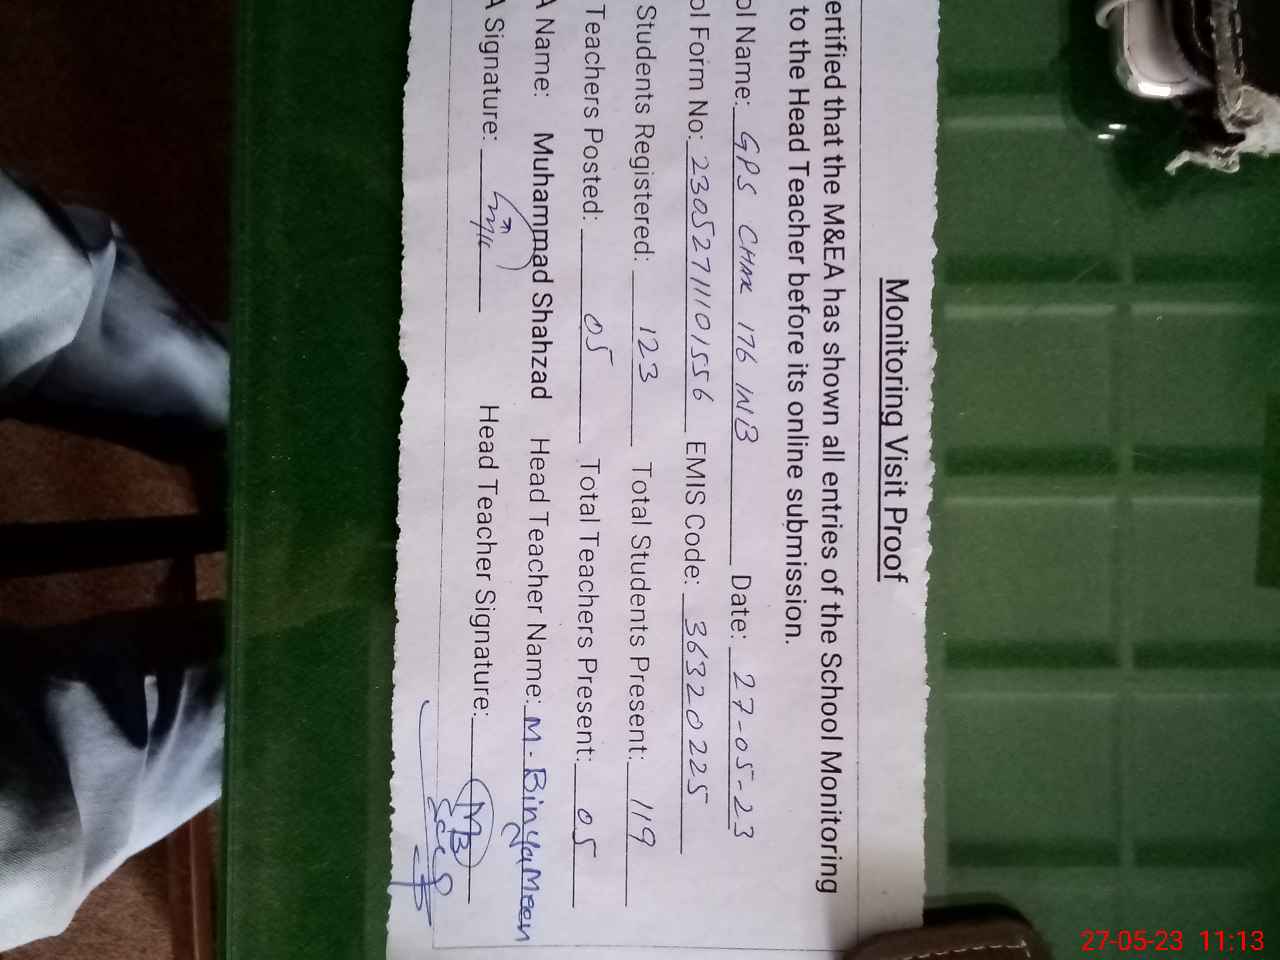 Monitoring Visit Proof
ertified that the M&EA has shown all entries of the School Monitoring
to the Head Teacher before its online submission.
ol Name: GPS CHAK 176 W/B Date: 27-05-23
ol Form No: 23052711101556 EMIS Code: 36320225
Students Registered: 123 Total Students Present: 119
Teachers Posted: 05 Total Teachers Present: 05
A Name: Muhammad Shahzad Head Teacher Name: M. BinyaMeen
A Signature: Head Teacher Signature: MB
27-05-23 11:13